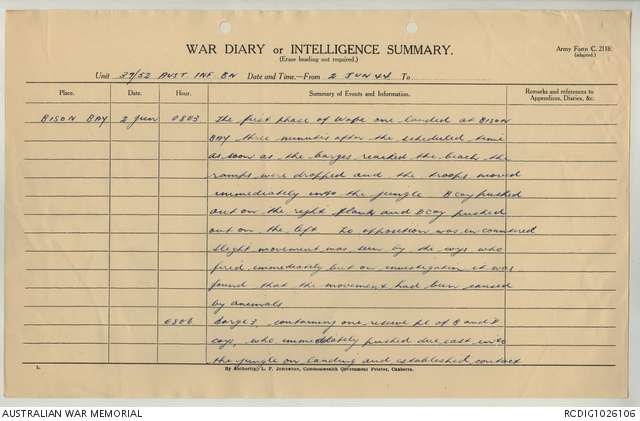 WAR DIARY or INTELLIGENCE SUMMARY.
(Erase heading not required.)
Army Form C. 2118.
(adapted.)
Unit 37/52 AUST INF BN Date and Time.—From 2 JUN 44 To
Place. Date. Hour. Summary of Events and Information. Remarks and references to Appendices, Diaries, &c.
BISON BAY 2 Jun 0803 The first phase of Wave one landed at BISON
BAY three minutes after the scheduled time
as soon as the barges reached the beach the
ramps were dropped and the troops moved
immediately into the jungle B Coy pushed
out on the right flank and Coy pushed
out on the left No opposition was incountered
Slight movement was seen by the coys who
fired immediately but on investigation it was
found that the movement had been caused
by animals
0806 Barge 3, containing one reserve pl of B and
coys, who immediately pushed due east into
the jungle on landing and established contact
1.
By Authority: L. F. Johnston, Commonwealth Government Printer, Canberra.
AUSTRALIAN WAR MEMORIAL
RCDIG1026106